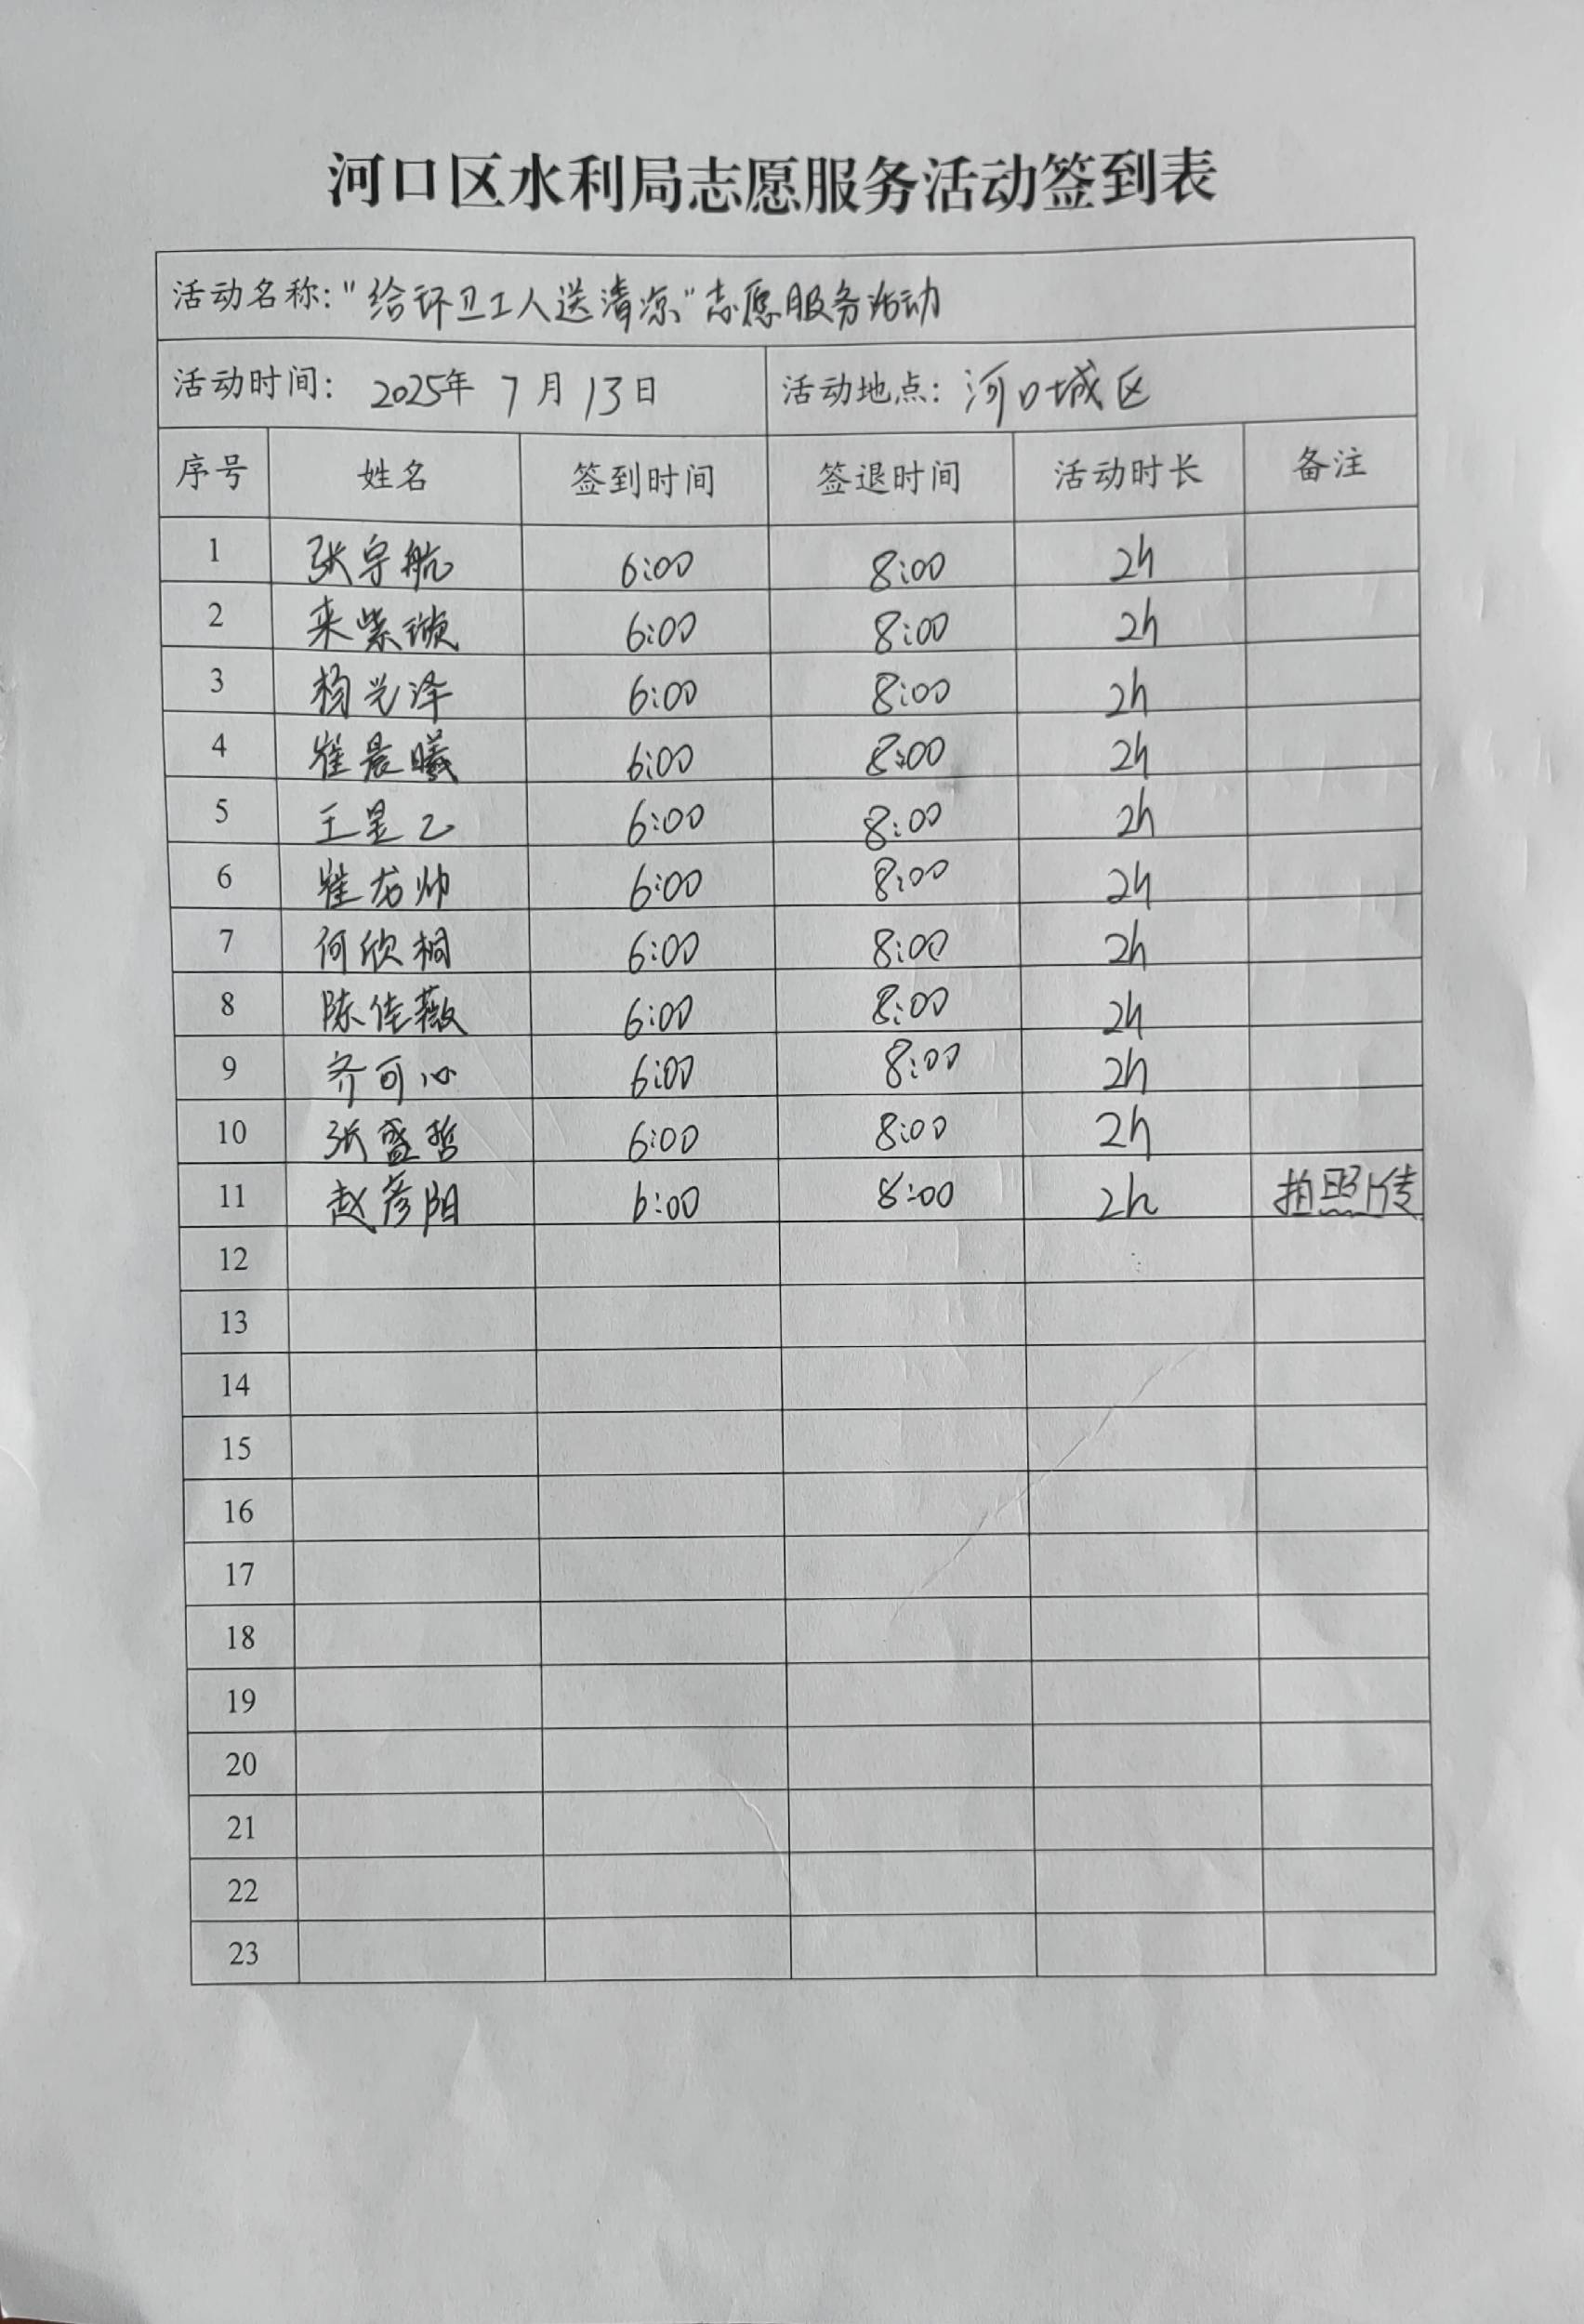 河口区水利局志愿服务活动签到表
活动名称："给环卫工人送清凉"志愿服务活动
活动时间： 2025年 7月 13日 活动地点：河口城区
序号 姓名 签到时间 签退时间 活动时长 备注
1 张宇航 6:00 8:00 2h
2 来紫 6:00 8:00 2h
3 杨光泽 6:00 8:00 2h
4 崔晨曦 6:00 8:00 2h
5 王昱乙 6:00 8:00 2h
6 崔龙帅 6:00 8:00 2h
7 何欣桐 6:00 8:00 2h
8 陈佳薇 6:00 8:00 2h
9 齐可心 6:00 8:00 2h
10 张盛哲 6:00 8:00 2h
11 赵彦阳 6:00 8:00 2h 拍照上传
12
13
14
15
16
17
18
19
20
21
22
23